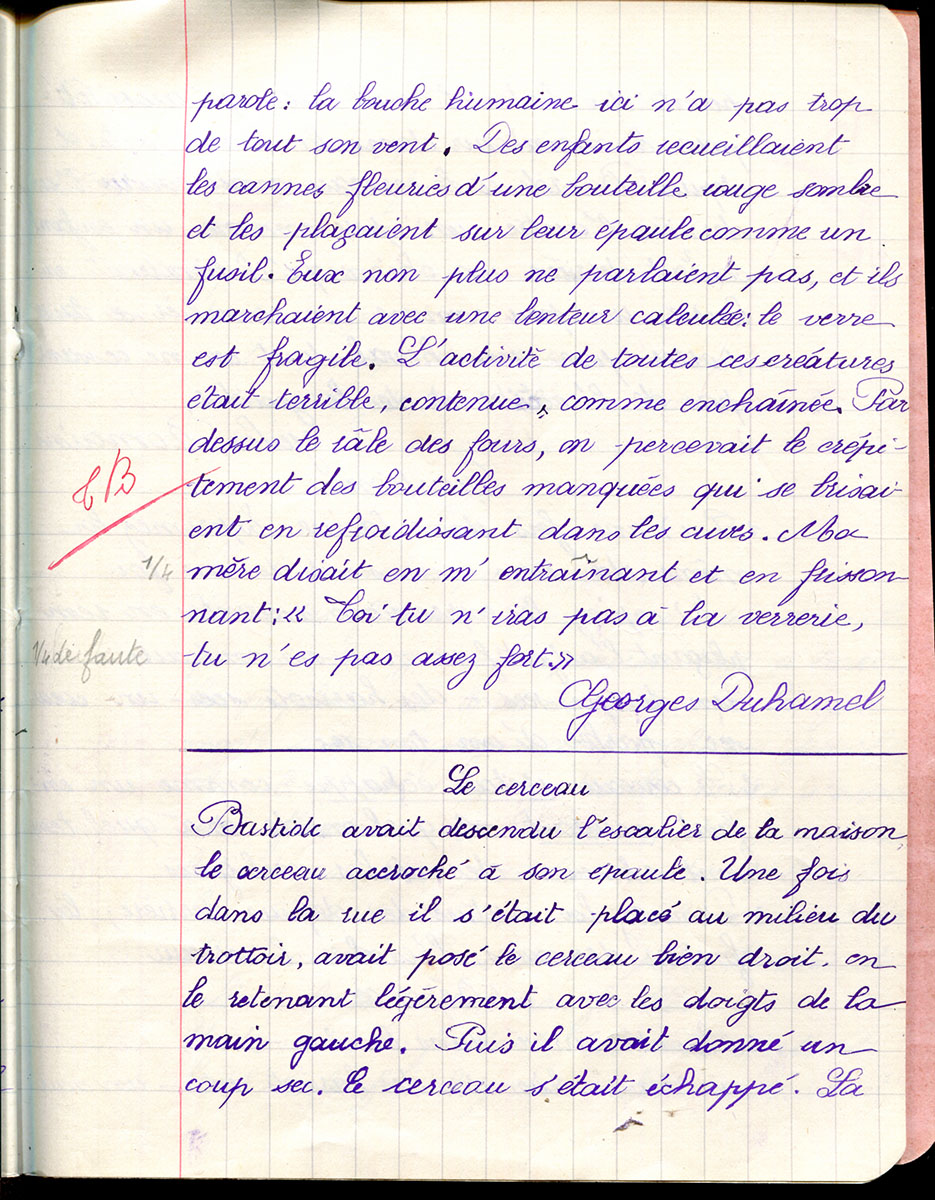 parole : la bouche humaine ici n'a pas trop
de tout son vent. Des enfants recueillaient
les cannes fleuries d'une bouteille rouge sombre
et les plaçaient sur leur épaule comme un
fusil. Eux non plus ne parlaient pas, et ils
marchaient avec une lenteur calculée : le verre
est fragile. L'activité de toutes ces créatures
était terrible, contenue, comme enchaînée. Par
dessus le râle des fours, on percevait le crépi-
TB
tement des bouteilles manquées qui se brisai-
ent en refroidissant dans les cuves. Ma
1/4
mère disait en m'entraînant et en frisson-
nant : « Toi tu n'iras pas à la verrerie,
1/4 de faute
tu n'es pas assez fort. »
Georges Duhamel
Le cerceau
Bastide avait descendu l'escalier de la maison,
le cerceau accroché à son épaule. Une fois
dans la rue il s'était placé au milieu du
trottoir, avait posé le cerceau bien droit. en
le retenant légèrement avec les doigts de la
main gauche. Puis il avait donné un
coup sec. Le cerceau s'était échappé. La